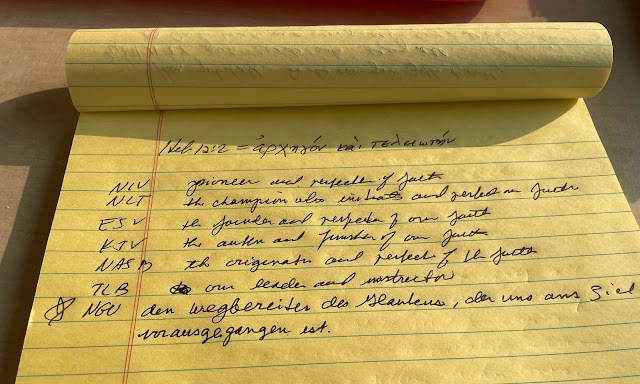 Heb. 12:2 = ἀρχηγὸν καὶ τελειωτὴν
NIV pioneer and perfecter of faith
NLT the champion who initiates and perfects our faith
ESV the founder and perfecter of our faith
KJV the author and finisher of our faith
NASB the originator and perfecter of the faith
TLB our leader and instructor
NGU den Wegbereiter des Glaubens, der uns ans Ziel
vorausgegangen ist.